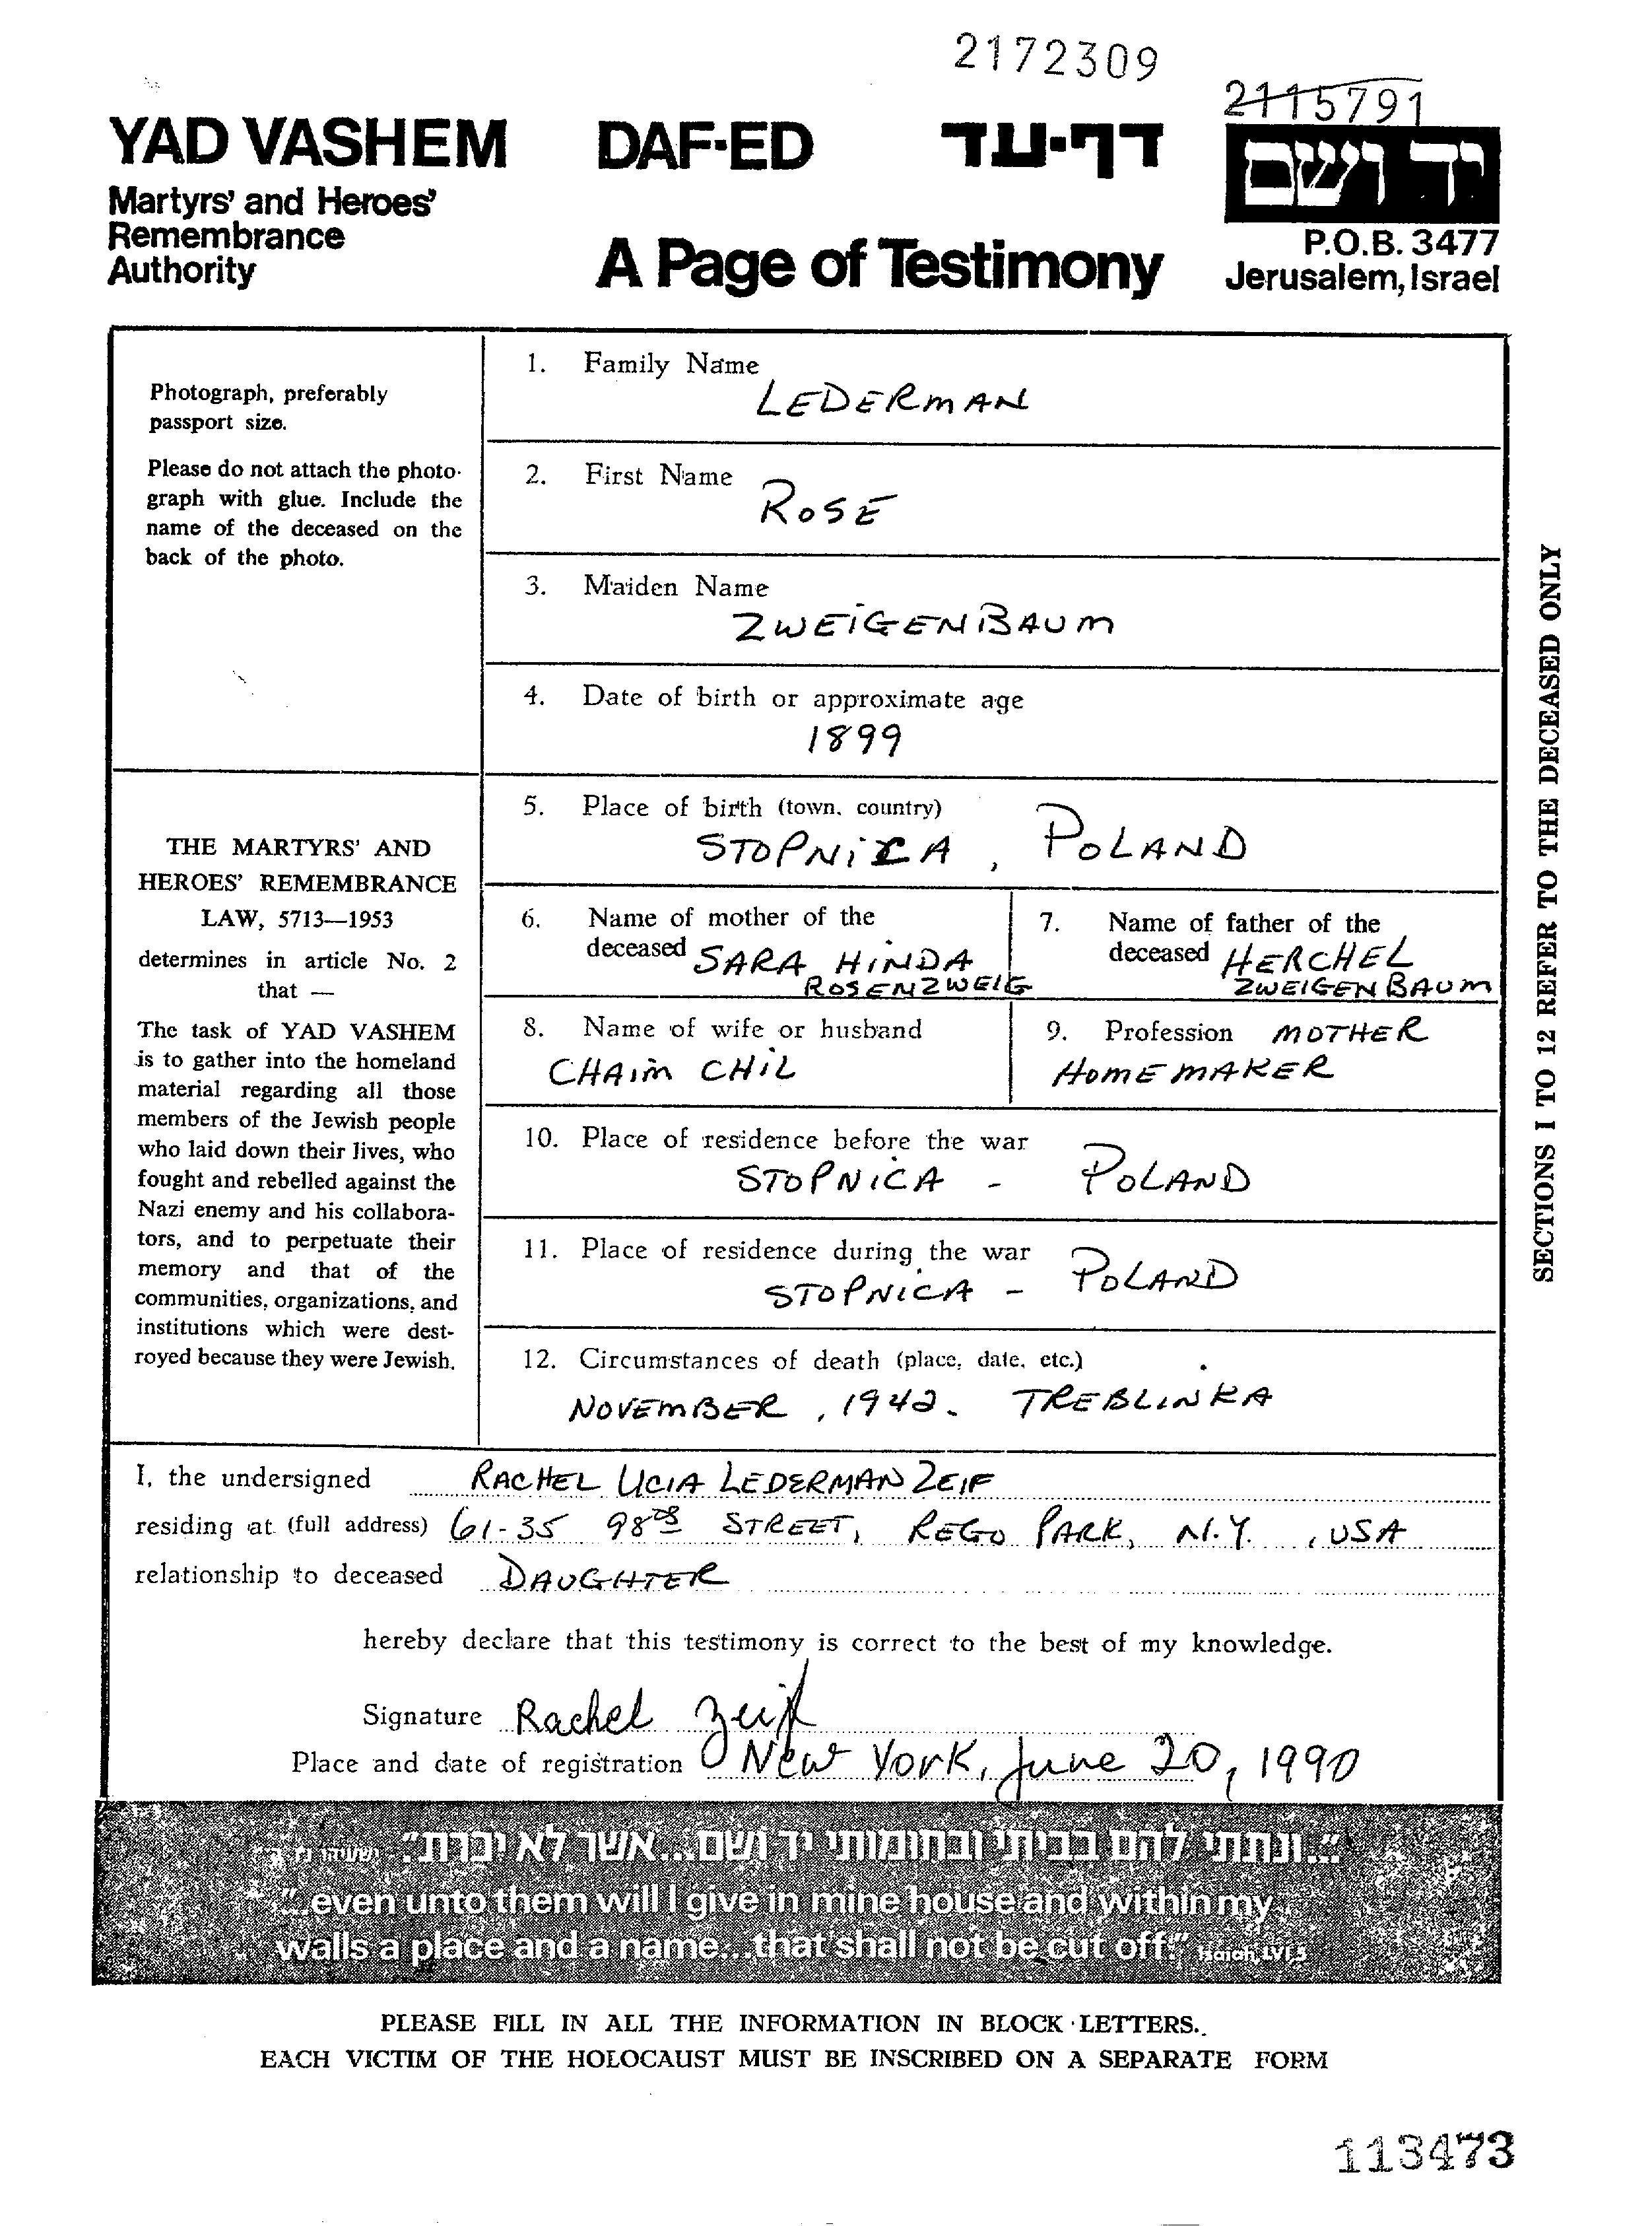 2172309
2115791
YAD VASHEM DAF-ED דף-עד
יד ושם
Martyrs' and Heroes'
Remembrance
Authority
A Page of Testimony
P.O.B. 3477
Jerusalem, Israel
Photograph, preferably
passport size.
Please do not attach the photo-
graph with glue. Include the
name of the deceased on the
back of the photo.
THE MARTYRS' AND
HEROES' REMEMBRANCE
LAW, 5713—1953
determines in article No. 2
that —
The task of YAD VASHEM
is to gather into the homeland
material regarding all those
members of the Jewish people
who laid down their lives, who
fought and rebelled against the
Nazi enemy and his collabora-
tors, and to perpetuate their
memory and that of the
communities, organizations, and
institutions which were dest-
royed because they were Jewish.
1. Family Name
LEDERMAN
2. First Name
ROSE
3. Maiden Name
ZWEIGENBAUM
4. Date of birth or approximate age
1899
5. Place of birth (town, country)
STOPNICA, POLAND
6. Name of mother of the
deceased SARA HINDA
ROSENZWEIG
7. Name of father of the
deceased HERCHEL
ZWEIGENBAUM
8. Name of wife or husband
CHAIM CHIL
9. Profession MOTHER
HOMEMAKER
10. Place of residence before the war
STOPNICA - POLAND
11. Place of residence during the war
STOPNICA - POLAND
12. Circumstances of death (place, date, etc.)
NOVEMBER, 1942. TREBLINKA
SECTIONS 1 TO 12 REFER TO THE DECEASED ONLY
I, the undersigned RACHEL UCIA LEDERMAN ZEIF
residing at (full address) 61-35 98 STREET, REGO PARK, N.Y., USA
relationship to deceased DAUGHTER
hereby declare that this testimony is correct to the best of my knowledge.
Signature Rachel Zeif
Place and date of registration New York, June 20, 1990
"...ונתתי להם בביתי ובחומותי יד ושם...אשר לא יכרת."
"...even unto them will I give in mine house and within my
walls a place and a name...that shall not be cut off." Isaiah, LVI,5
PLEASE FILL IN ALL THE INFORMATION IN BLOCK LETTERS.
EACH VICTIM OF THE HOLOCAUST MUST BE INSCRIBED ON A SEPARATE FORM
113473